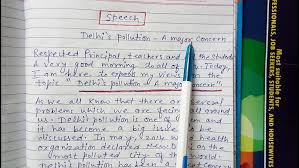 Speech
Delhi's pollution - A major concern
Respected Principal, teachers and the students
A very good morning to all of us. Today,
I am here to express my views on the
topic "Delhi's pollution - A major concern
As we all know that there are several
problems which we are facing all around
us. Delhi's pollution is one of them and
it has become a big issue to be
discussed. In may, 2014, world health
organization declared New
most polluted city of the world
Delhi's pollution has been
Most suitable for
PROFESSIONALS, JOB SEEKERS, STUDENTS AND HOUSEWIVES